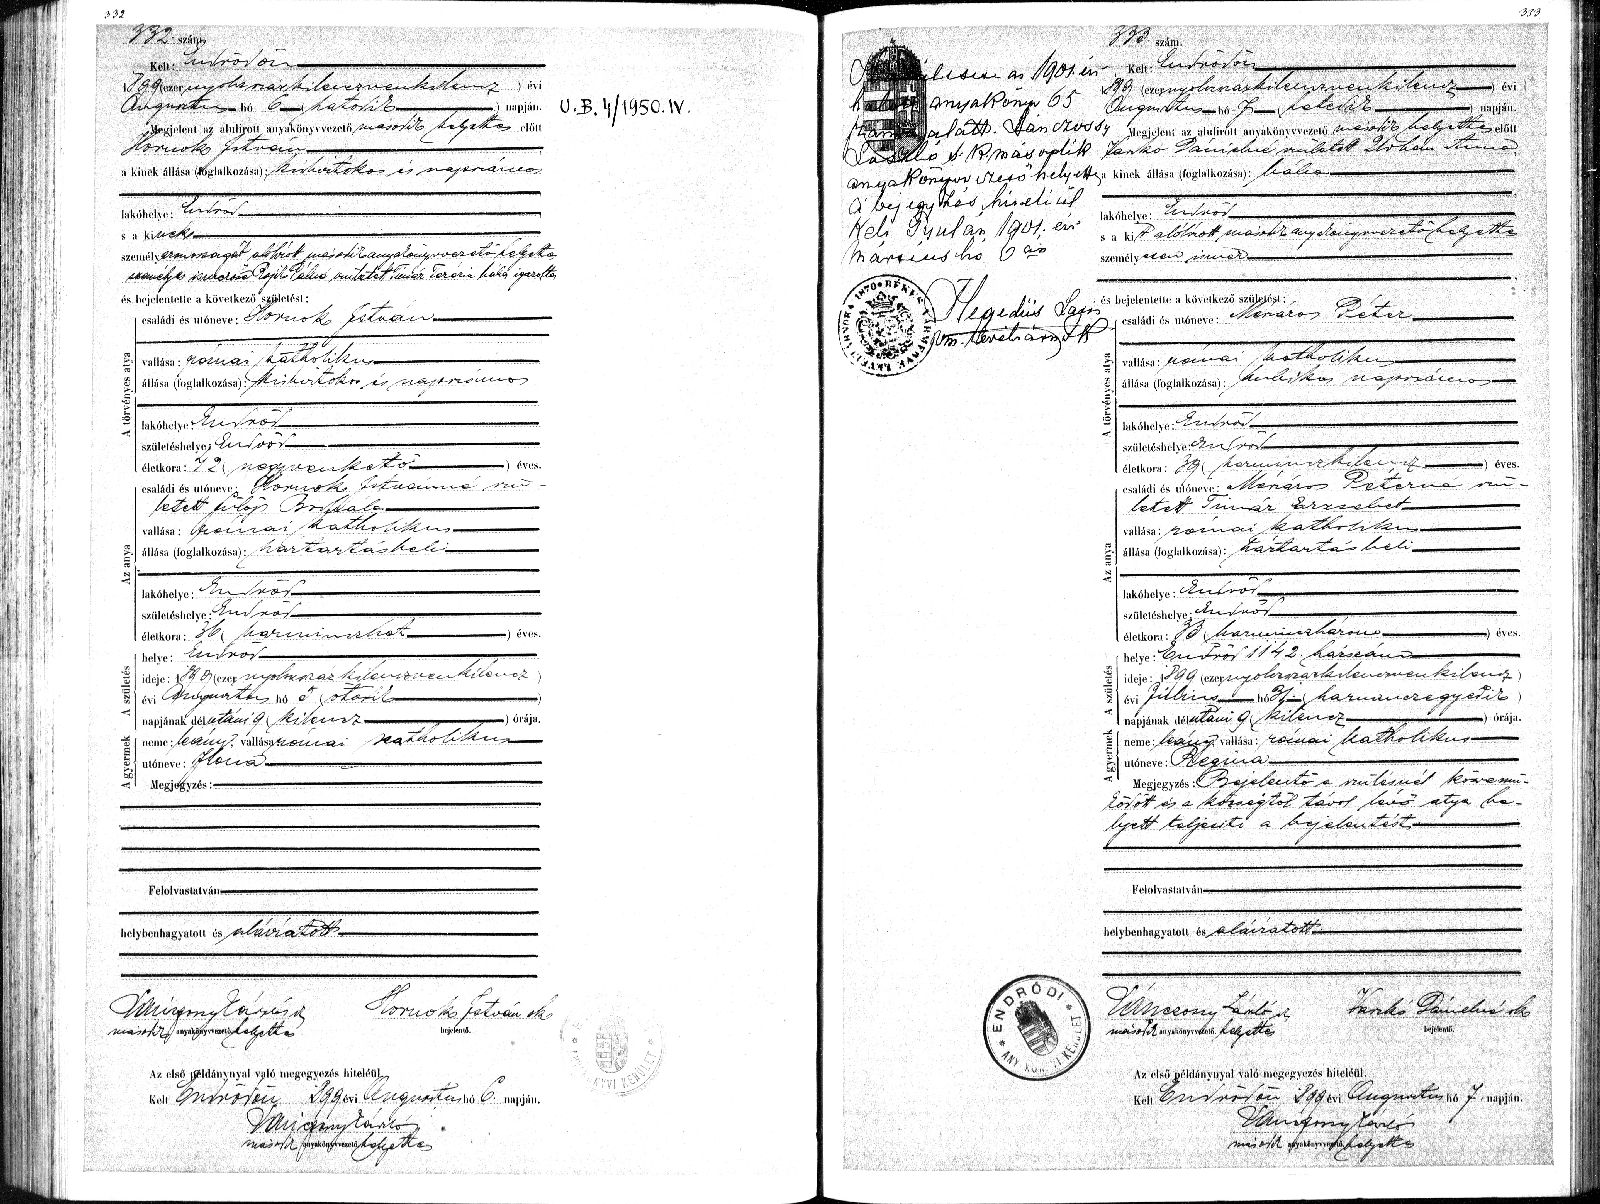 332
332 szám.
Kelt: Endrődön
1899 (ezer nyolczszázkilenczvenkilencz) évi
Augusztus hó 6 (hatodik) napján.
Megjelent az alulirott anyakönyvvezető második helyettes előtt
Hornok István
a kinek állása (foglalkozása): kisbirtokos és napszámos
lakóhelye: Endrőd
s a kinek
személy
és bejelentette a következő születést:
A törvényes atya
családi és utóneve: Hornok István
vallása: római katholikus
állása (foglalkozása): kisbirtokos és napszámos
lakóhelye: Endrőd
születéshelye: Endrőd
életkora: 42 (negyvenkettő) éves.
Az anya
családi és utóneve: Hornok Istvánné szü-
letett Fülöp Borbála
vallása: római katholikus
állása (foglalkozása): háztartásbeli
lakóhelye: Endrőd
születéshelye: Endrőd
életkora: 36 (harminczhat) éves.
A születés
helye: Endrőd
ideje: 1899 (ezer nyolczszázkilenczvenkilencz)
évi Augusztus hó 5 (ötödik
napjának délutáni 9 (kilencz) órája.
A gyermek
neme: leány. vallása: római katholikus
utóneve: Ilona
Megjegyzés:
Felolvastatván
helybenhagyatott és aláiratott
Hornok István sk
második anyakönyvvezető helyettes
bejelentő.
Az első példánynyal való megegyezés hiteléül.
Kelt Endrődön 1899 évi Augusztus hó 6. napján.
második anyakönyvvezető helyettes
U.B. 4/1950. IV.
333
333 szám.
Kelt: Endrődön
1899 (ezer nyolczszázkilenczvenkilencz) évi
Augusztus hó 7 (hetedik) napján.
Megjelent az alulirott anyakönyvvezető második helyettes előtt
Jankó Dánielné született
a kinek állása (foglalkozása): bába
lakóhelye: Endrőd
s a kit alólirott második anyakönyvvezető helyettes
személyesen ismer
és bejelentette a következő születést:
A törvényes atya
családi és utóneve: Mészáros Péter
vallása: római katholikus
állása (foglalkozása): kubikos napszámos
lakóhelye: Endrőd
születéshelye: Endrőd
életkora: 39 (harminczkilencz) éves.
Az anya
családi és utóneve: Mészáros Péterné szü-
letett Timár Erzsébet
vallása: római katholikus
állása (foglalkozása): háztartásbeli
lakóhelye: Endrőd
születéshelye: Endrőd
életkora: 33 (harminczhárom) éves.
A születés
helye: Endrőd 1142 házszám
ideje: 1899 (ezer nyolczszázkilenczvenkilencz)
évi Július hó 31 (harminczegyedik)
napjának délutáni 9 (kilencz) órája.
A gyermek
neme: leány. vallása: római katholikus
utóneve: Regina
Megjegyzés: Bejelentő a szülésnél közremű-
ködött és a községtől távol lévő atya he-
lyett teljesiti a bejelentést
Felolvastatván
helybenhagyatott és aláiratott
Vánczony László Jankó Dánielné sk
második anyakönyvvezető helyettes
bejelentő.
Az első példánynyal való megegyezés hiteléül.
Kelt Endrődön 1899 évi Augusztus hó 7. napján.
második anyakönyvvezető helyettes
az 1901. évi
anyakönyv 65
szám alatt.
László s.k. második
anyakönyvvezető helyettes
A bejegyzés hiteléül
Kelt Gyulán, 1901. évi
márczius hó 6 án
Hegedüs Lajos
vm. levéltárnok
1870 BÉKÉS VÁRMEGYE LEVÉLTÁRNOKA
ENDRŐDI